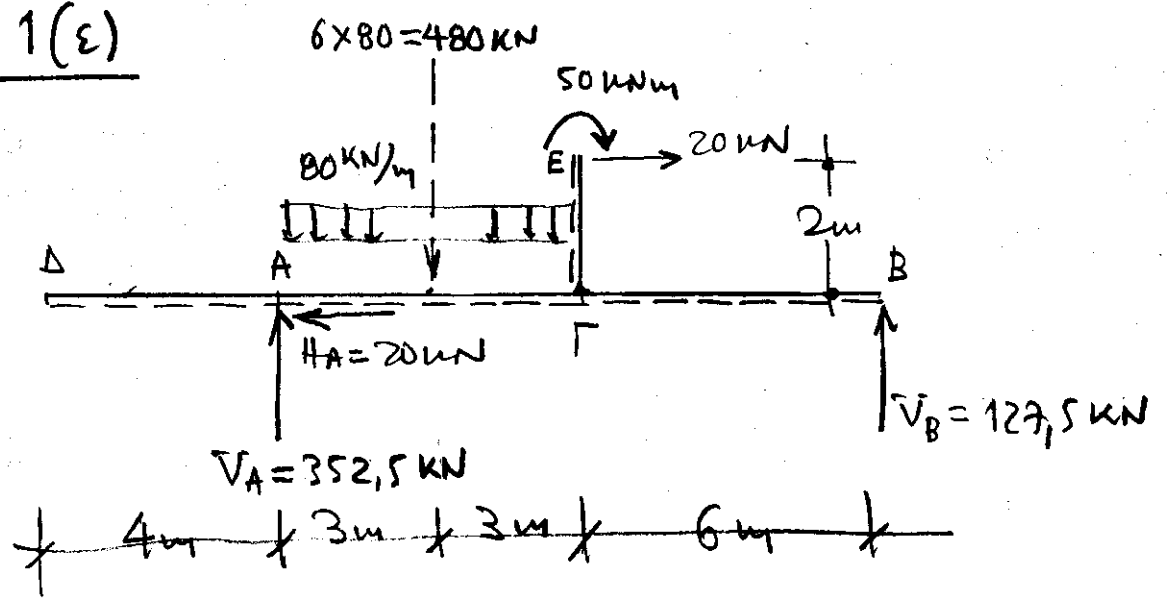 1(ε)
6×80=480KN
50 KNm
80 KN/m
E
20 KN
2m
Δ
A
B
HA=20KN
Γ
VB=127,5 KN
VA=352,5 KN
4m 3m 3m 6m